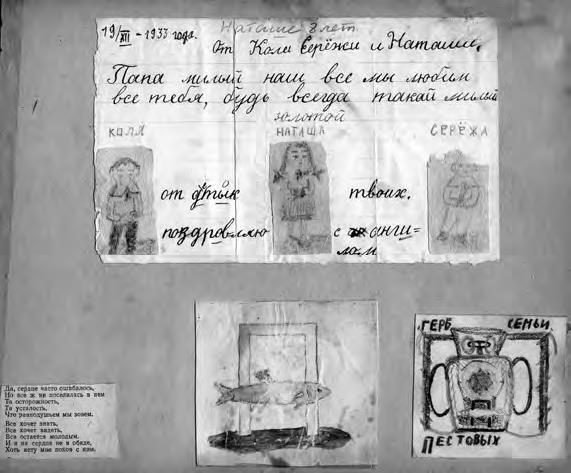 19/XII - 1933 года. Наташе 8 лет
От Коли Серёжи и Наташи.
Папа милый наш все мы любим
все тебя, будь всегда такай милый
золотой
КОЛЯ НАТАША СЕРЁЖА
от твоих.
поздровлю с анги=
лом
ГЕРБ СЕМЬИ
ПЕСТОВЫХ
Да, сердце часто ошибалось,
Но все ж не поселилась в нем
Та осторожность,
Та усталость,
Что равнодушьем мы зовем.
Все хочет знать,
Все хочет видеть,
Все остается молодым.
И я на сердце не в обиде,
Хоть нету мне покоя с ним.